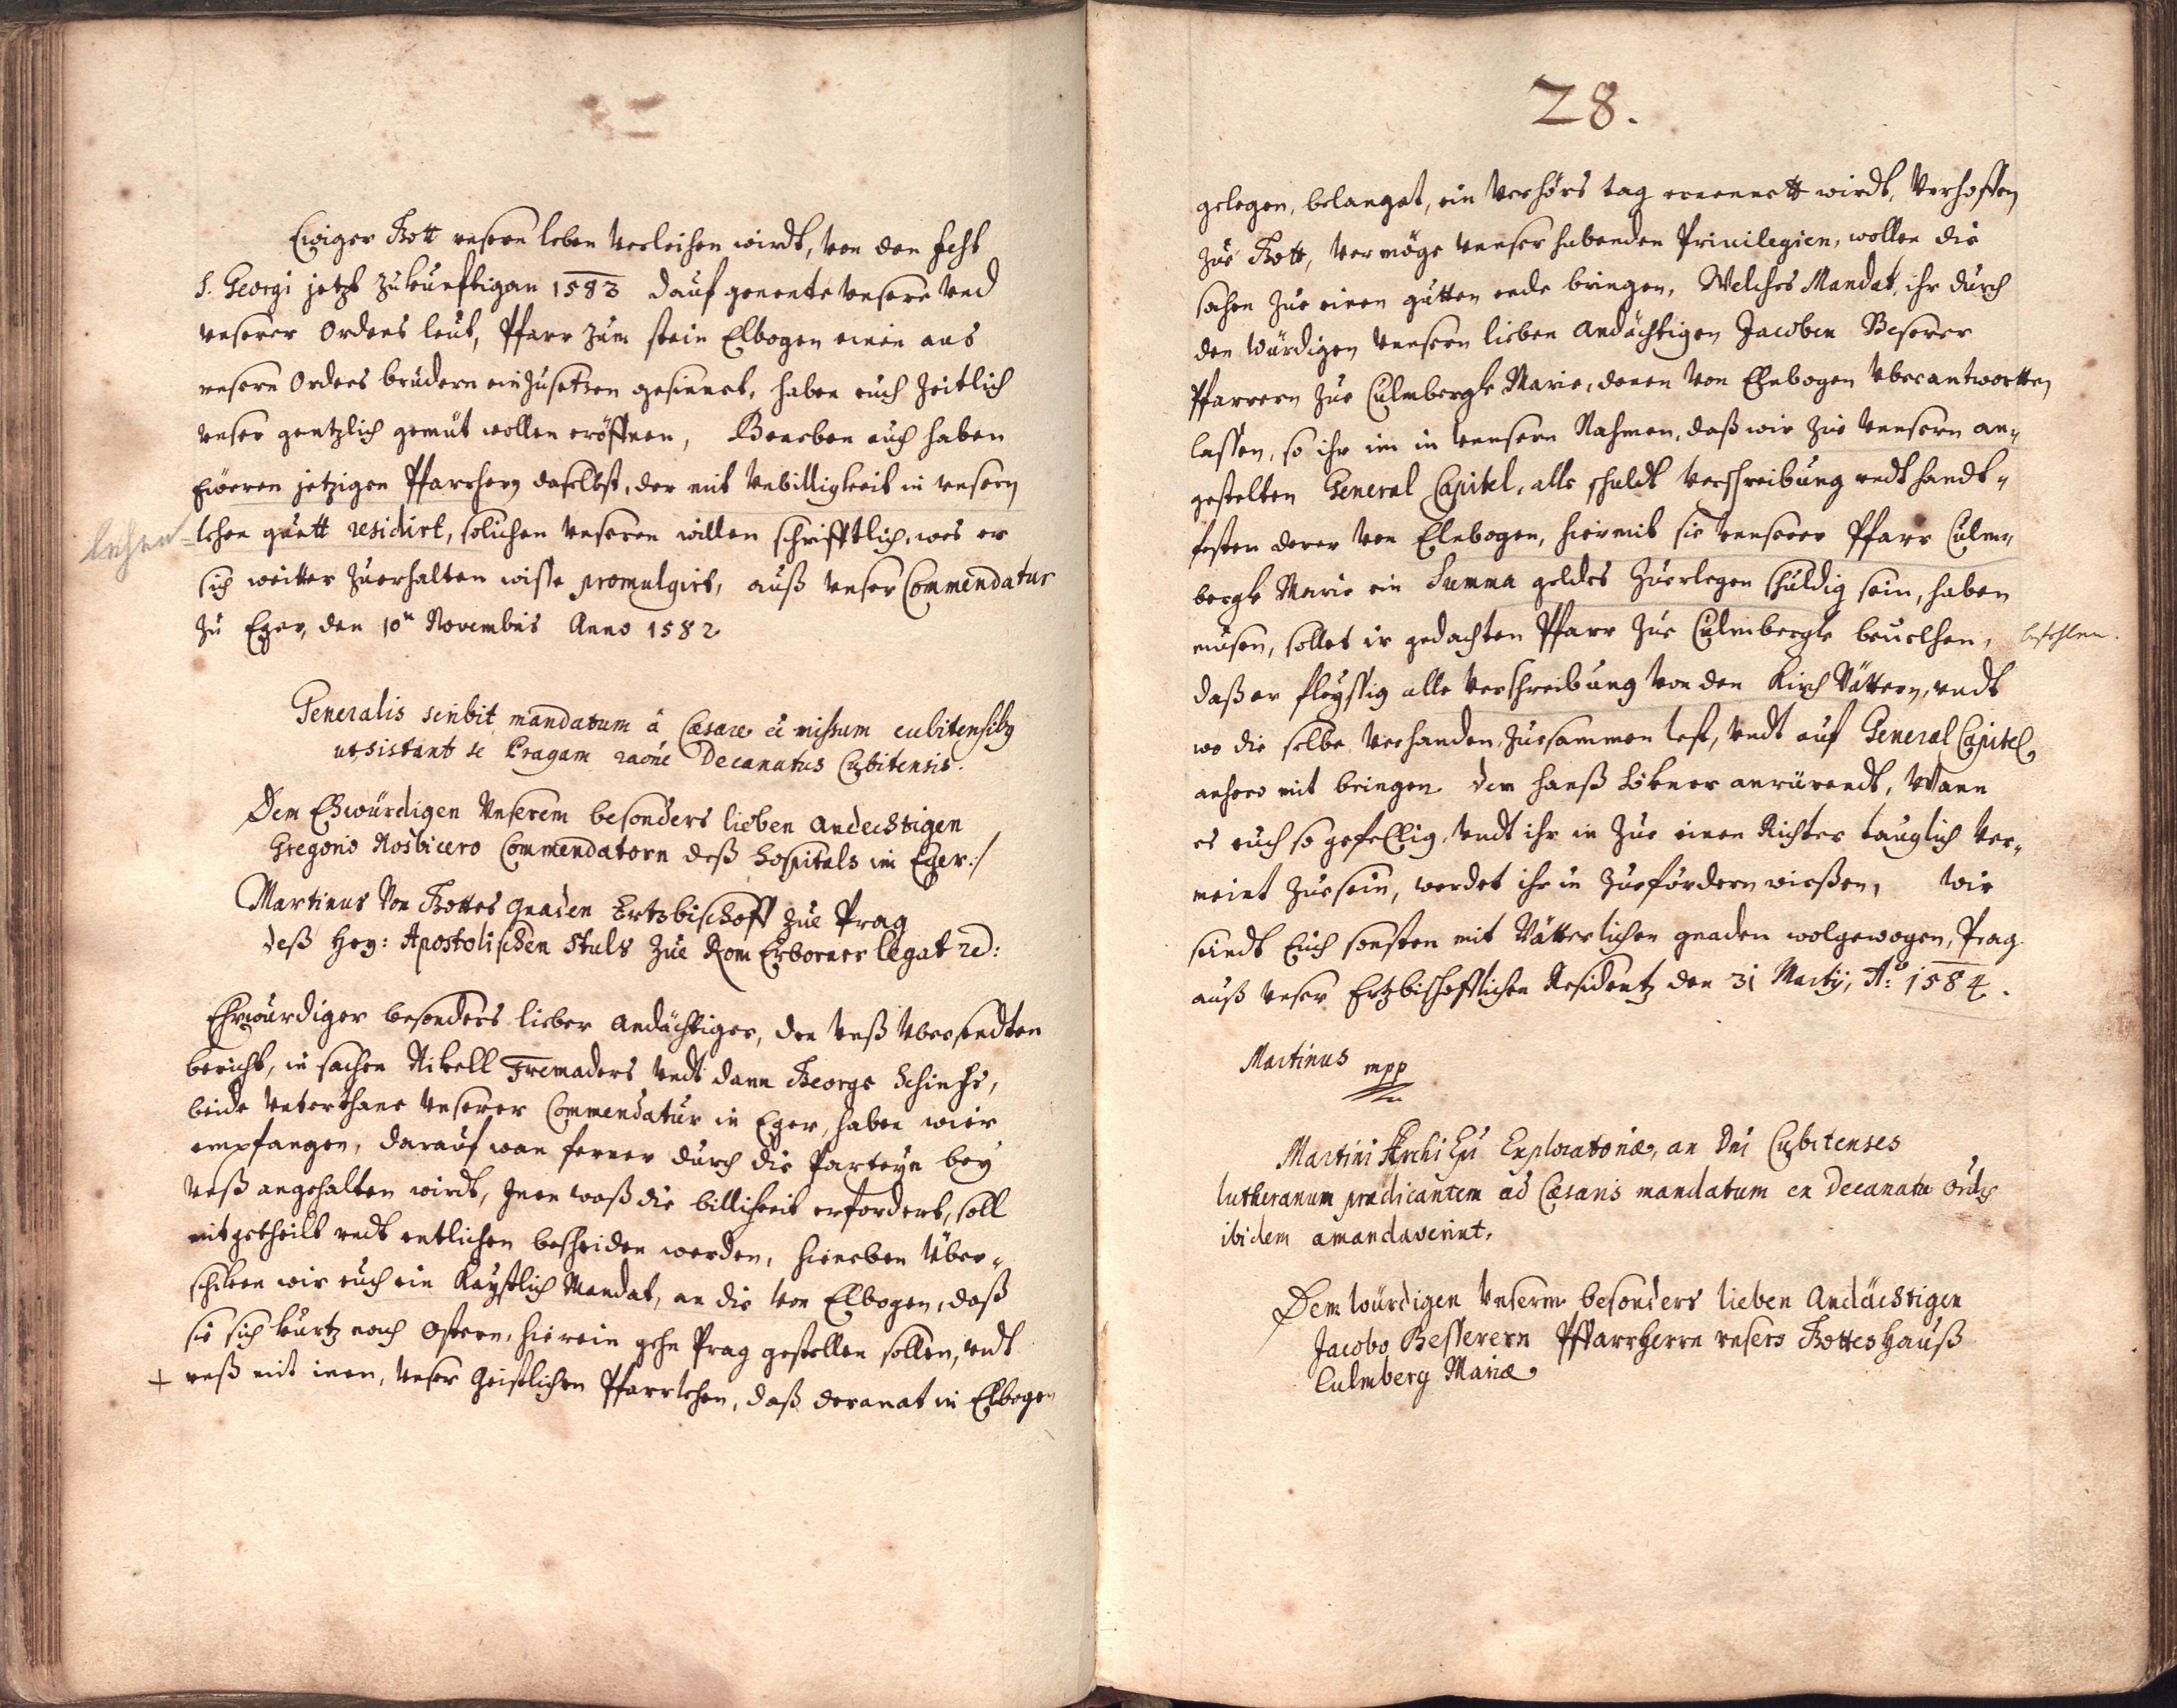 Ewiger Gott unsern leben verleihen wirdt, von den fest
S. Georgi jetzt zukunfftigan 1583 dauf genente unsere und
unserer Ordens leut, Pfarr zum stein Elbogen einen aus
unsern Ordens brudern ein zusetzen gesinnet, haben euch zeitlich
unser gentzlich gemut wollen eröffnen, Beneben euch haben
Eweren jetzigen Pfarrhern daselbst, der mit unbilligkeit in unsern
lehen guett residirt, solichen unseren willen schrifftlich, wes er
lehen
sich weitter zuerhalten wisse promulgirt, auß unser Commendatur
zu Eger, den 10n Novembris Anno 1582
Generalis scribit mandatum à Cæsare missum cubitensibus
ut sistant se Pragam raõne Decanatus Cubitensis.
Dem Ehwürdigen Unserem besonders lieben Andechtigen
Gregorio Rosbicero Commendatorn deß Hospitals in Eger:/
Martinus Von Gottes gnaden Ertzbischoff zue Prag
deß Hey: Apostolischen Stuls zue Rom Erborner legat
Ehrwürdiger besonders lieber Andächtiger, den unß übersendten
bericht, in sachen Nikell Fremaders undt dann George Schirchs,
beide unterthane unserer Commendatur in Eger, haben wier
empfangen, darauf wan ferner durch die Parteyn bey
unß angehalten wirdt, Inen waß die billikeit erfordert, soll
mitgetheilt undt entlichen bescheiden werden, hieneben über-
schiken wir euch ein Kayserlich Mandat, an die von Elbogen, daß
sie sich kurtz nach Ostern, hierein gehn Prag gestellen sollen, undt
+ unß mit inen, unser Geistlichen Pfarrlehen, daß decanat in Elbogen
28.
gelegen, belanget, ein verhörs tag ernennett wirdt, Verhoffen
zue Gott, vermöge unnser habenden Privilegien, wollen die
sachen zue einen gutten ende bringen, Welches Mandat, ihr durch
den würdigen unnsern lieben Andächtigen Jacoben Beserer
Pfarrern zue Culmbergk Marie, denen von Elnbogen uberantwortten
lassen, so ihr im in unnsern Nahmen, daß wir zue unnsern an-
gestelten General Capitel, alle schuldt verschreibung undt handt-
festen derer von Elnbogen, hiermit sie unnserer Pfarr Culm-
bergk Marie ein Summa geldes zuerlegen schuldig sein, haben
musen, sollet ir gedachten Pfarr zue Culmbergk beuelhen,
befehlen.
daß er fleyssig alle verschreibung von den Kirch Vättern, undt
wo die selbe verhanden, zuesammen less, undt auf General Capitel,
anhero mit bringen. Den Hanß Sibner anrürendt, Wann
es euch so gefellig, undt ihr in zue einen Richter tauglich ver-
meint zuesein, werdet ihr in zuefördern wießen, Wir
seindt Euch sonsten mit Vätterlichen gnaden wolgewogen, Prag
auß unser Ertzbischofflichen Residentz den 31 Martij, Aº: 1584.
Martinus mpp
Martini Archi Epi Exploratoriæ, an Dni Cubitenses
lutheranum prædicantem ad Cæsaris mandatum ex Decanatu Ordis
ibidem amandaverint.
Dem würdigen Unserm besonders lieben Andächtigen
Jacobo Besserern Pffarrherrn unsers Gottes Hauß
Culmberg Mariæ